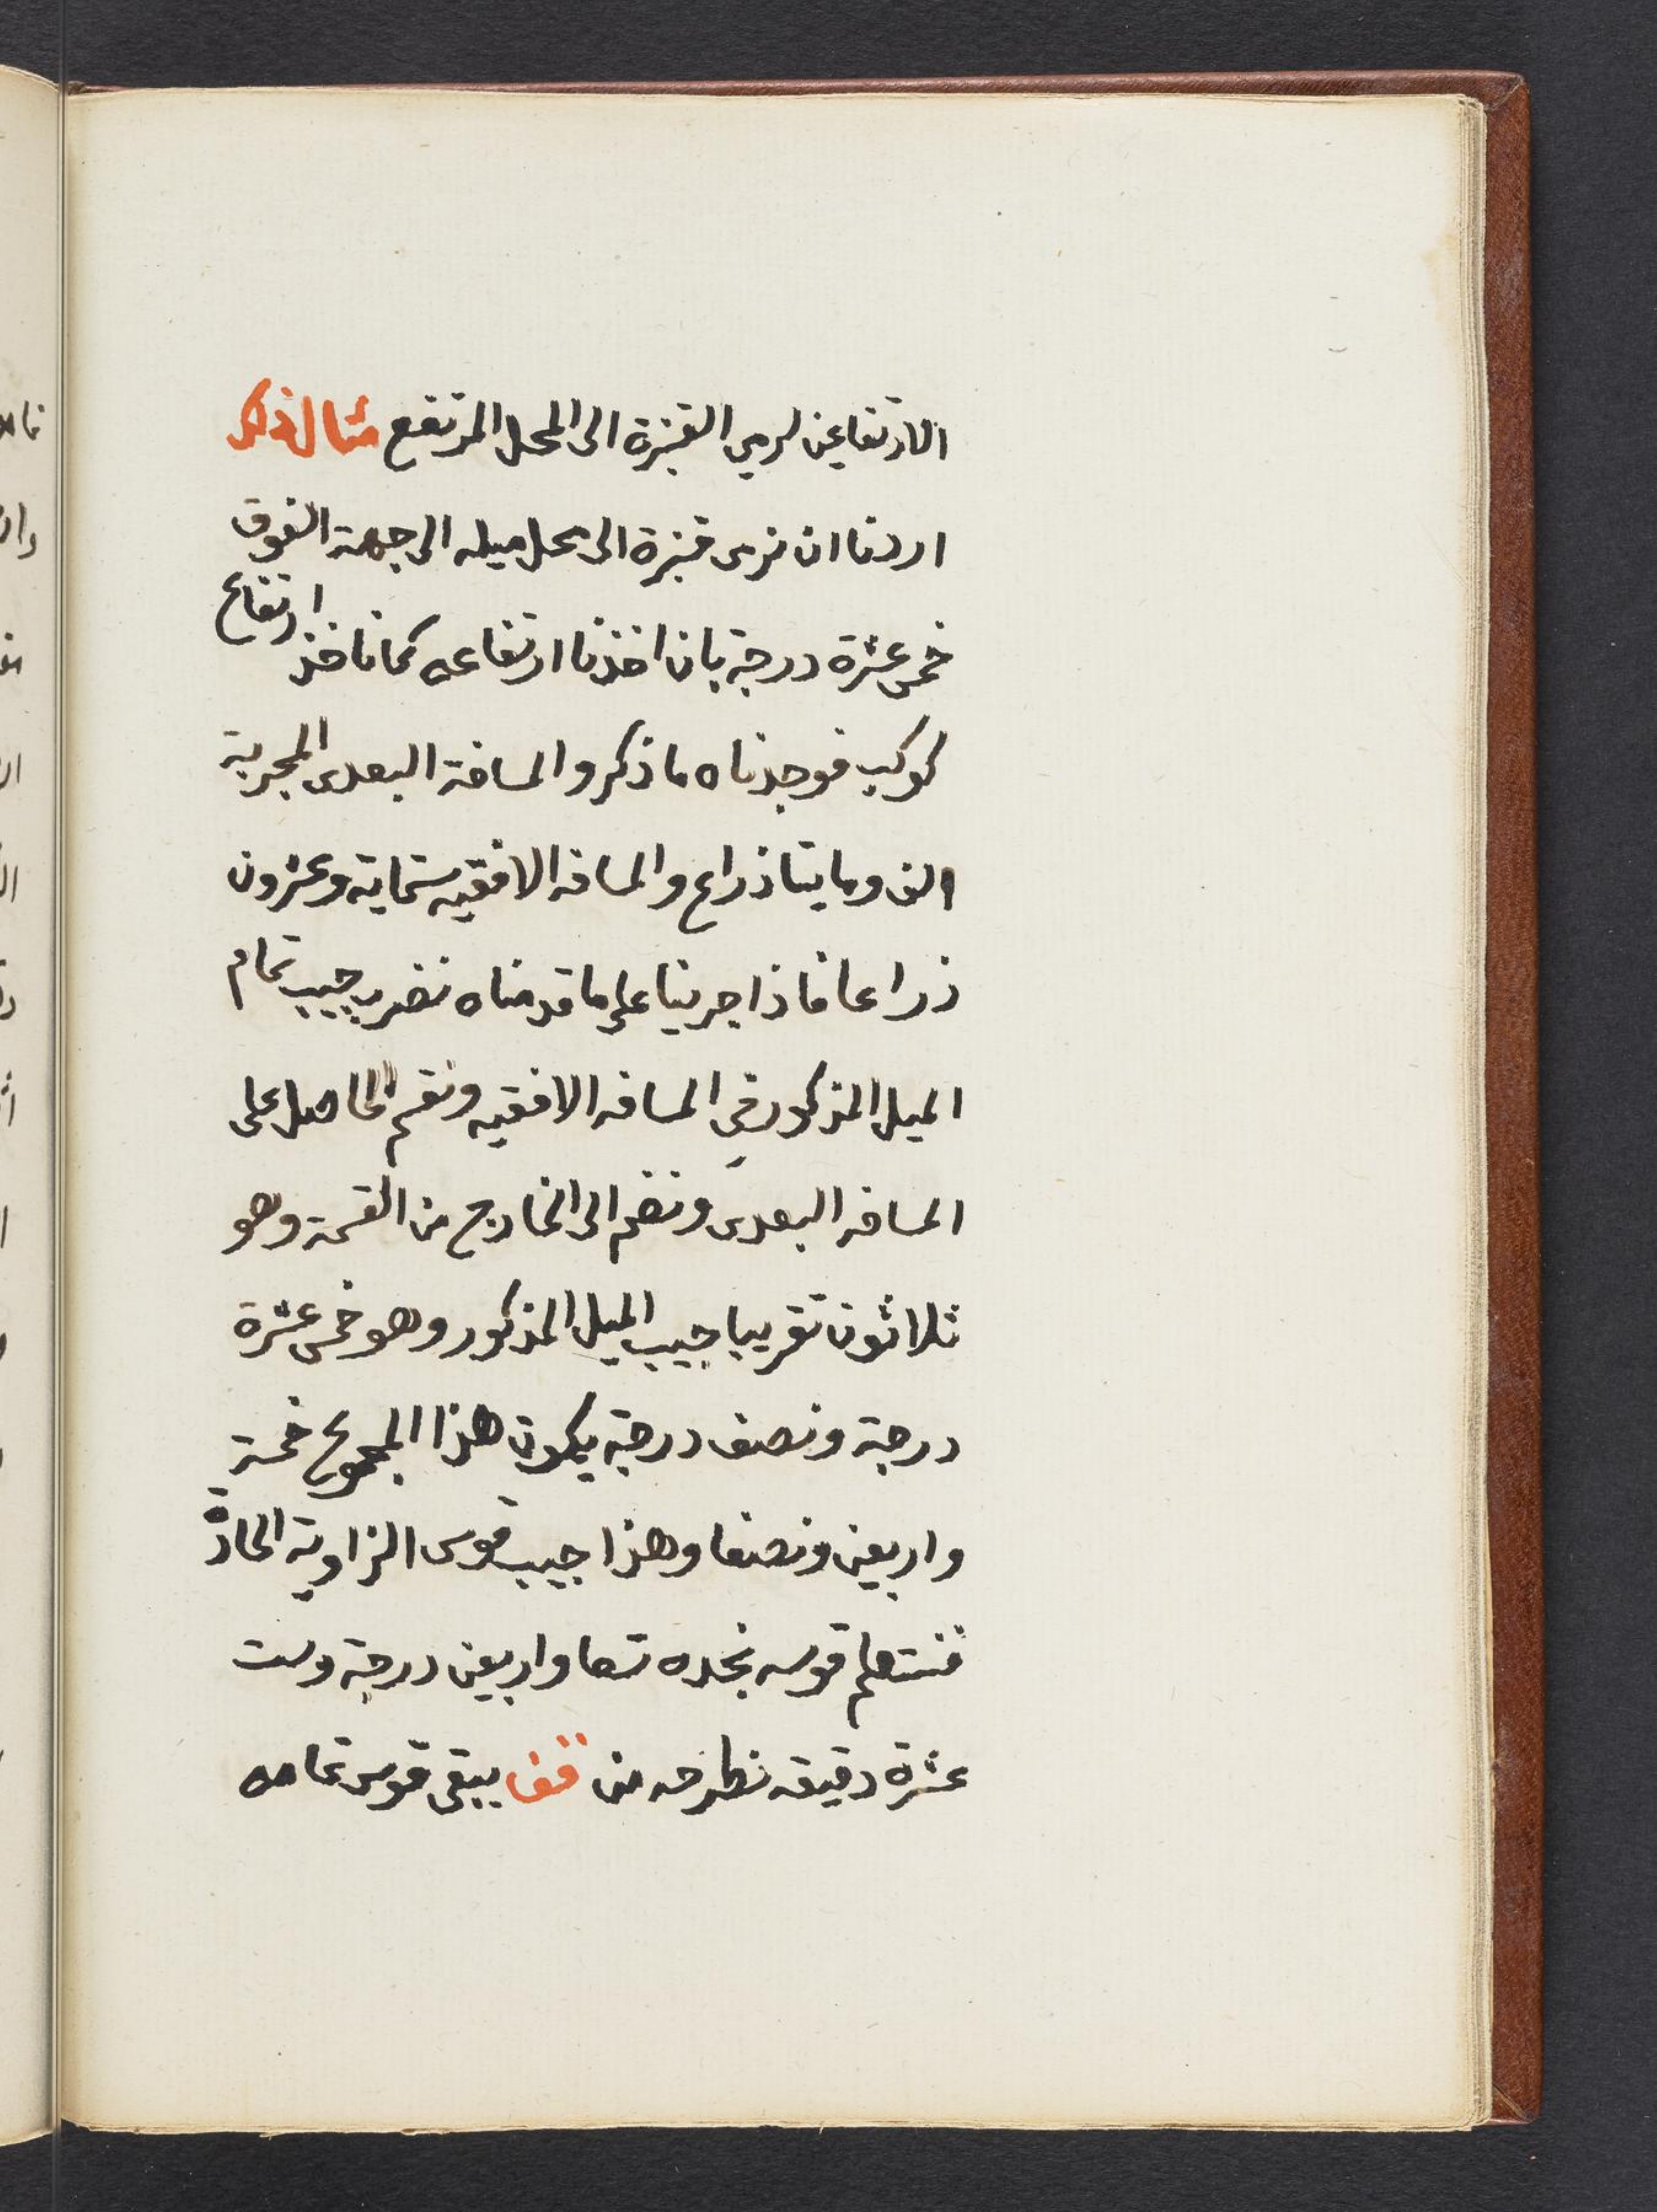 الارتفاعين لرمي القنبزة الى المحل المرتفع مثال ذلك
اردنا ان نرمى قنبزة الى محل ميله الى جهة الفوق
خمس عشرة درجة بان اخذنا ارتفاعه كما ناخذ ارتفاع
كوكب فوجدناه ما ذكر والمسافة البعدى المجربة
الف ومايتا ذراع والمسافه الافقيه ستماية وعشرون
ذراعا فاذا جرينا على ما قدمناه نضرب جيب تمام
الميل المذكور في المسافه الافقيه ونقسم الحاصل على
المسافه البعدى ونضم الى الخارج من القسمة وهو
ثلاثون تقريبا جيب الميل المذكور وهو خمس عشرة
درجة ونصف درجة يكون هذا المجموع خمسة
واربعين ونصفا وهذا جيب قوس الزاوية الحادة
فنستعلم قوسه نجده تسعا واربعين درجة وست
عشرة دقيقه نطرحه من قف يبقى قوس تمامه